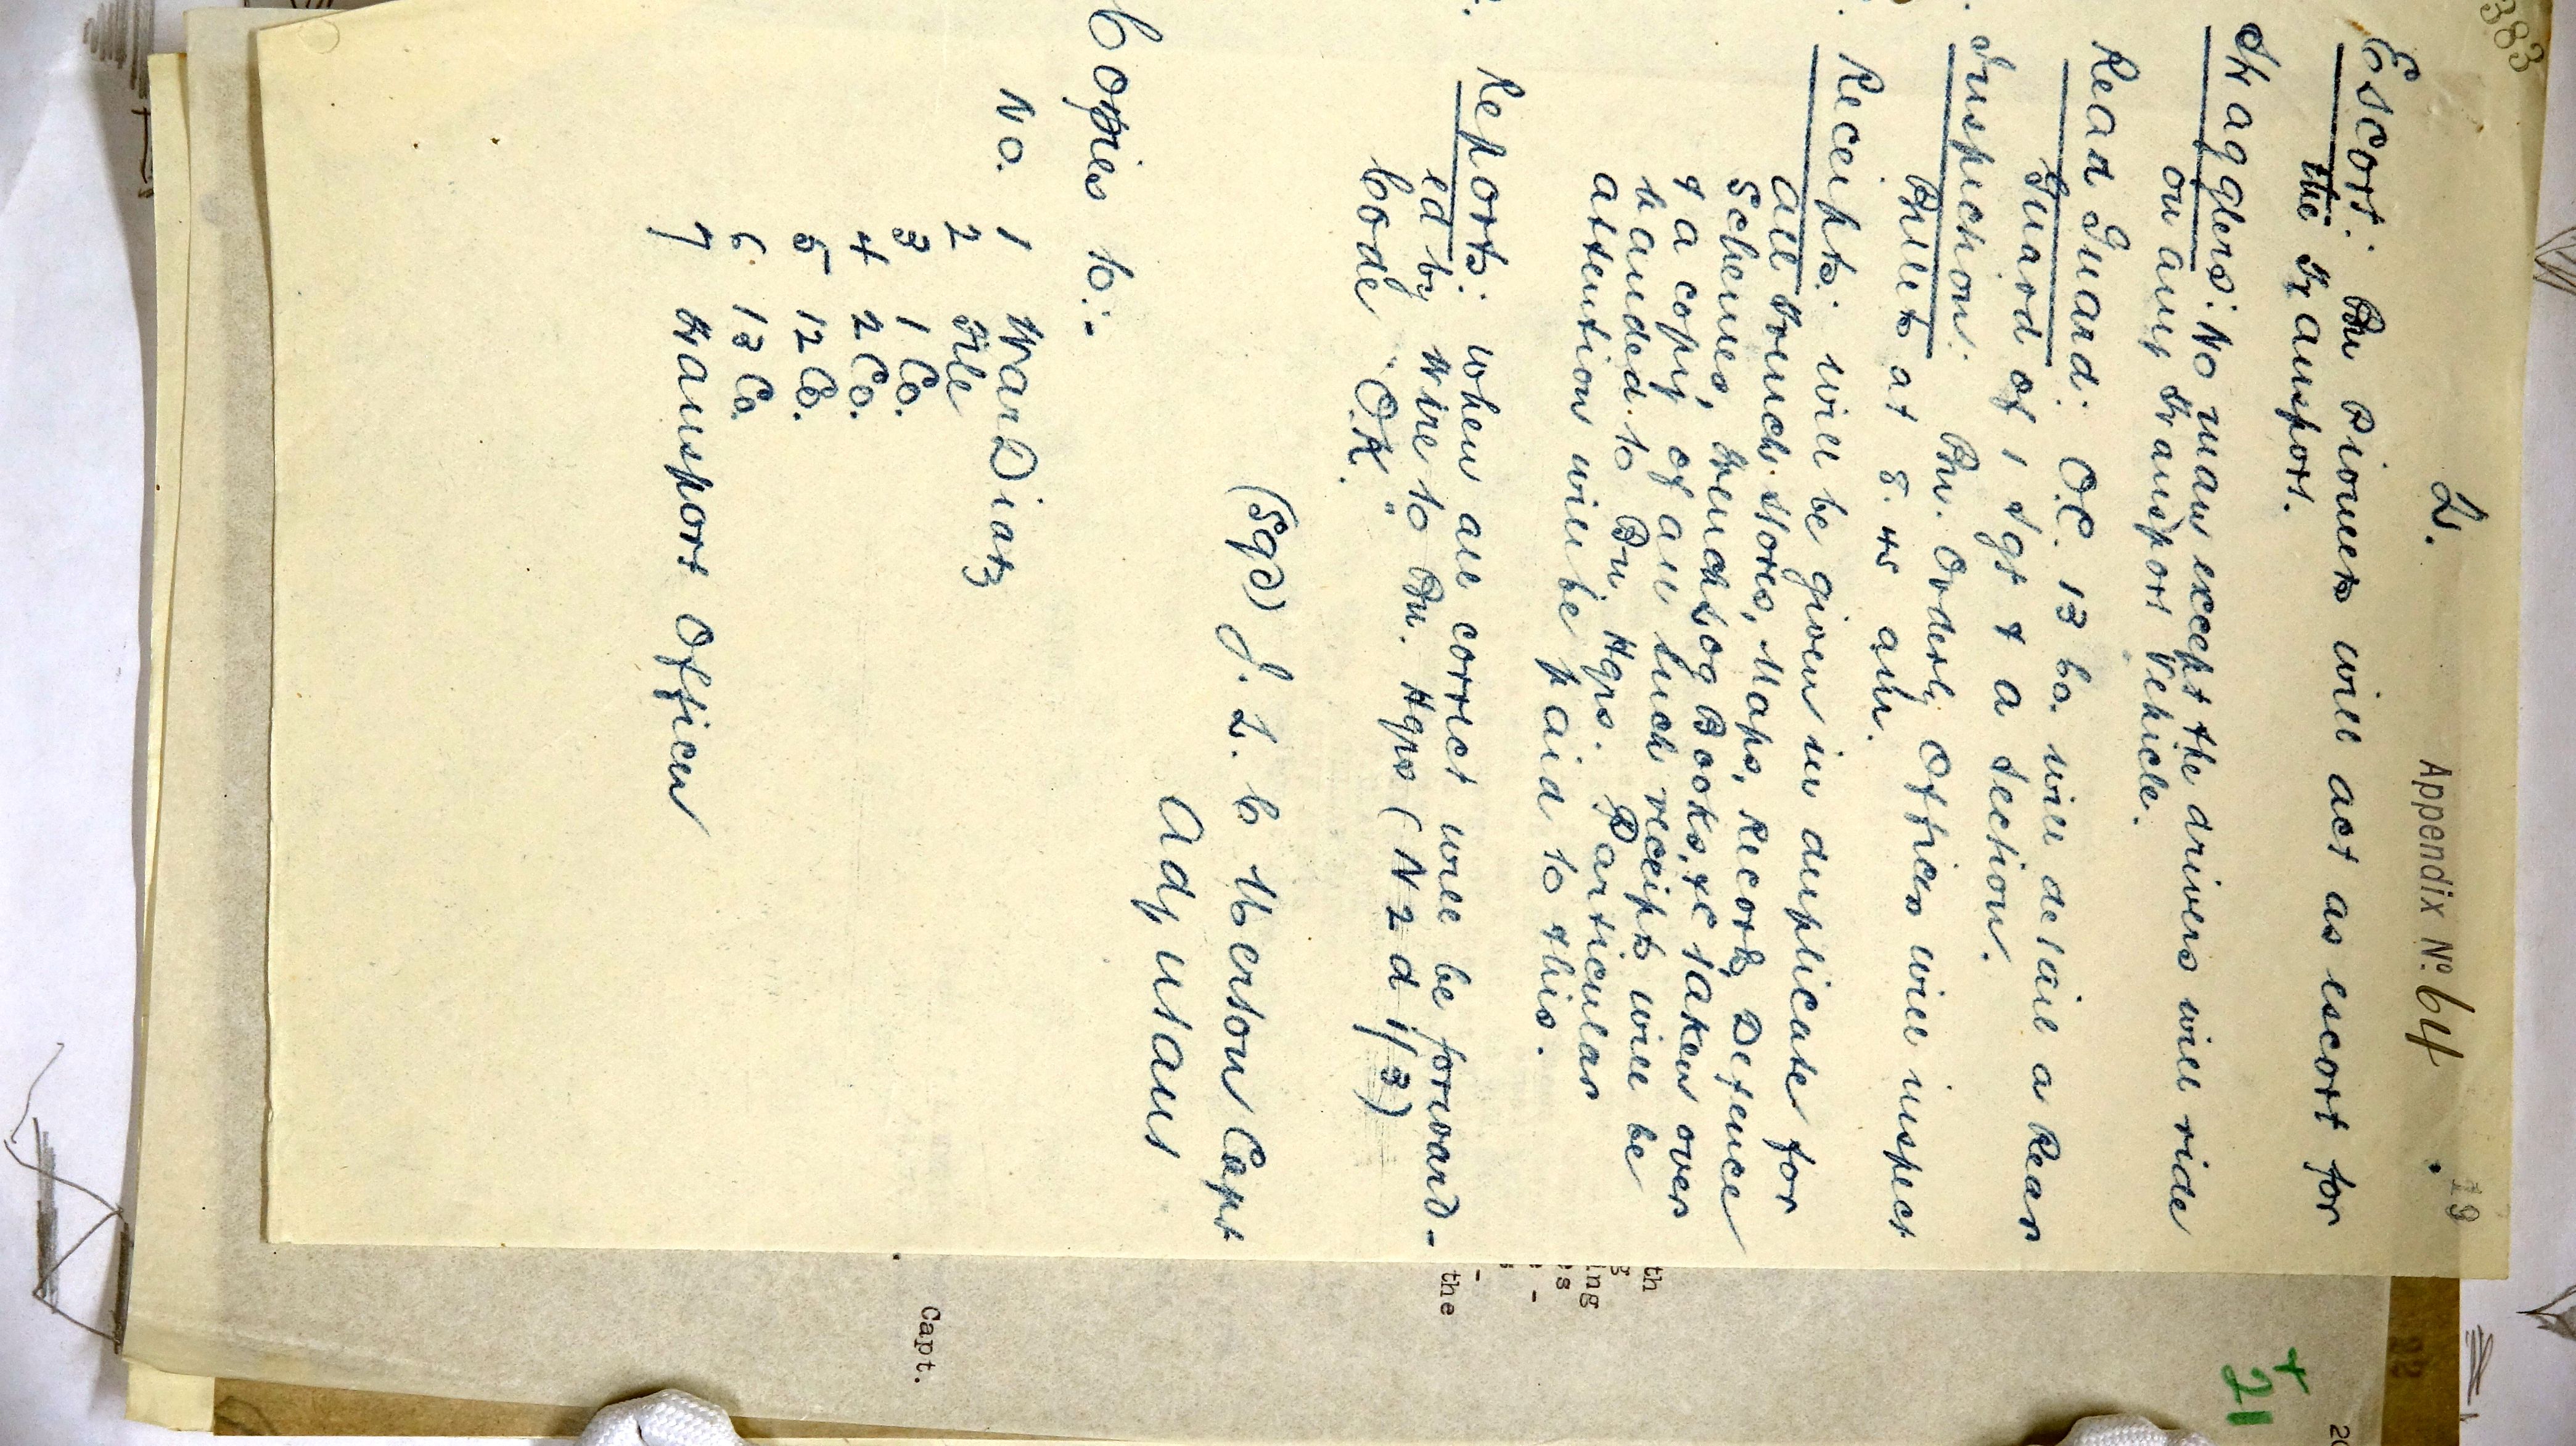 383
2.
Appendix No. 64
19
Escort: Bn Pioneers will act as escort for
the Transport.
Stragglers: No man except the drivers will ride
on any transport Vehicle.
Rear Guard: O.C. 13 Co. will detail a Rear
Guard of 1 Sgt & a Section.
Inspection: Bn. Orderly Officer will inspect
Billets at 8.45 am.
Receipts: will be given in duplicate for
all trench stores, Maps, Records, Defence
Schemes, trench Log Books, &c taken over
& a copy of all such receipts will be
handed to Bn Hqrs. Particular
attention will be paid to this.
Reports: when all correct will be forward-
ed by wire to Bn. Hqrs (N2d 1/3)
Code "O.K."
(Sgd) J. L. C Capt
Adjutant
Copies to:-
No. 1 War Diary
2 File
3 1 Co.
4 2 Co.
5 12 Co.
6 13 Co.
7 Transport Officer
th
ing
the
Capt.
+
21
22
20